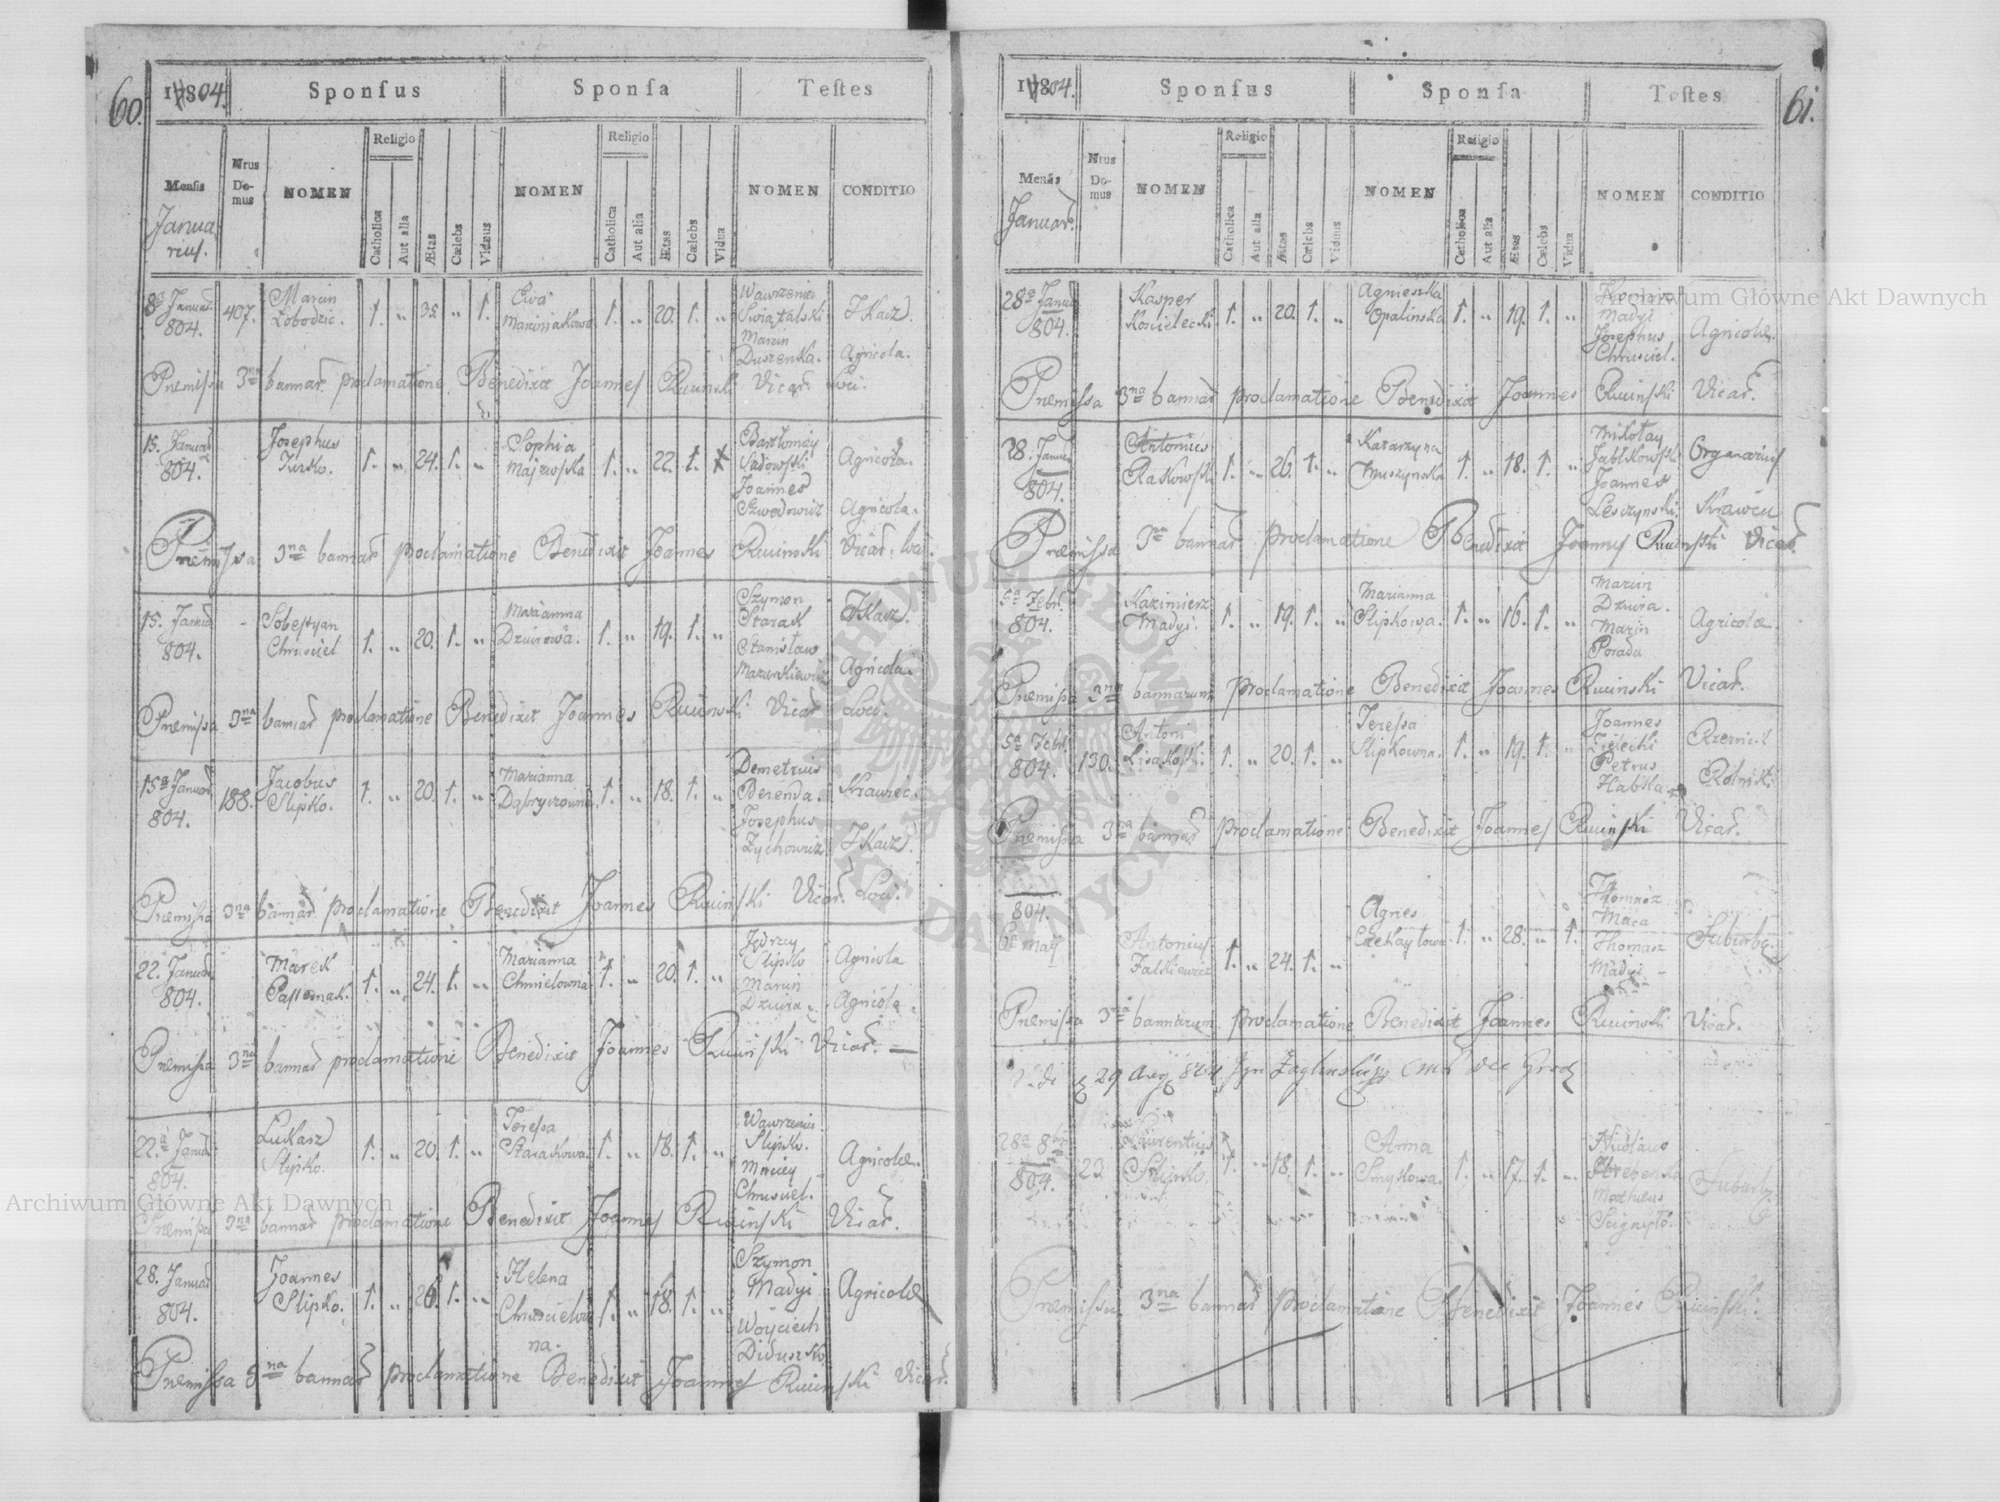 60.
1804.
Sponsus
Sponsa
Testes
Mensis
Nrus Do-mus
NOMEN
Religio
Catholica
Aut alia
Ætas
Cælebs
Viduus
NOMEN
Religio
Catholica
Aut alia
Ætas
Cælebs
Vidua
NOMEN
CONDITIO
Janua
rius.
8a Januar 804. 407. Marcin Łobodzic. 1. „ 35. „ 1. Ewa Marciniakowa 1. „ 20. 1. „ Wawrzeniec Swiątalski Marcin Duszenka. Tkacz. Agricola.
Premissa 3na bannar proclamatione Benedixit Joannes Rucinski Vicar Loci.
15. Januar 804. Josephus Jurko. 1. „ 24. 1. „ Sophia Majewska 1. „ 22. 1. Bartłomiey Sadowski Joannes Szwodowicz Agricola. Agricola.
Premissa 3na bannar proclamatione Benedixit Joannes Rucinski Vicar. Loci.
15. Januar 804. Sobestyan Chrusciel 1. „ 20. 1. „ Marianna Dziurowa. 1. „ 19. 1. „ Szymon Starak Stanisław Mazurkiewicz Tkacz. Agricola.
Premissa 3na bannar proclamatione Benedixit Joannes Rucinski Vicar Loci.
15a Januar 804. 188. Jacobus Slipko. 1. „ 20. 1. „ Marianna Dąbryczowna 1. „ 18. 1. „ Demetrius Berenda. Josephus Zychowicz Krawiec. Tkacz.
Premissa 3na bannar proclamatione Benedixit Joannes Rucinski Vicar Loci.
22. Januar 804. Marek Pasternak. 1. „ 24. 1. „ Marianna Chmielowna 1. „ 20. 1. „ Jędrzey Slipko Marcin Dziura. Agricola Agricola.
Premissa 3na bannar proclamatione Benedixit Joannes Rucinski Vicar.
22.a Januar 804. Lukasz Slipko. 1. „ 20. 1. „ Teressa Starakowa. 1. „ 18. 1. „ Wawrzeniec Slipko. Maciey Chrusciel. Agricolæ.
Premissa 3na bannar proclamatione Benedixit Joannes Rucinski Vicar.
28. Januar 804. Joannes Slipko. 1. „ 26. 1. „ Helena Chruscielowna. 1. „ 18. 1. „ Szymon Madyi Woyciech Diduszko Agricolæ
Premissa 3na bannar proclamatione Benedixit Joannes Rucinski Vicar.
61.
1804.
Sponsus
Sponsa
Testes
Mensis
Nrus Do-mus
NOMEN
Religio
Catholica
Aut alia
Ætas
Cælebs
Viduus
NOMEN
Religio
Catholica
Aut alia
Ætas
Cælebs
Vidua
NOMEN
CONDITIO
Januar.
28a Janua 804. Kasper Koscielecki 1. „ 20. 1. „ Agnieszka Opalinska 1. „ 19. 1. „ Madyi Josephus Chrusciel. Agricolæ.
Premissa 3na bannar proclamatione Benedixit Joannes Rucinski Vicar.
28. Janua 804. Antonius Rakowski 1. „ 26. 1. „ Katarzyna Muszynska 1. „ 18. 1. „ Mikołay Jabłkowski Joannes Lesczynski. Organarius Krawiec
Premissa 3na bannar proclamatione Benedixit Joannes Rucinski Vicar.
5a Febr. 804. Kazimierz Madyi. 1. „ 19. 1. „ Marianna Slipkowa. 1. „ 16. 1. „ Marcin Dziura. Marcin Porada Agricolæ.
Premissa 3na bannarum proclamatione Benedixit Joannes Rucinski Vicar.
5a Febr. 804. 130. Antoni 1. „ 20. 1. „ Teressa Slipkowna. 1. „ 19. 1. „ Joannes Zielecki Petrus Habka Rzemiesl Rolnik
Premissa 3na bannar proclamatione Benedixit Joannes Rucinski Vicar.
804. 6a May Antonius Zatkiewicz 1. „ 24. 1. „ Agnes Czekaytowa 1. „ 28. „ 1. Thomasz Maca Thomasz Madyi Suburbæ
Premissa 3na bannarum proclamatione Benedixit Joannes Rucinski Vicar.
29 Aug 804
28a 8bris 804. 23 Laurentius Slipko. 1. „ 18. 1. „ Anna Smykowa. 1. „ 17. 1. „ Nicolaus Matheus Suburb
Premissa 3na bannar proclamatione Benedixit Joannes Rucinski.
Archiwum Główne Akt Dawnych
Archiwum Główne Akt Dawnych
ARCHIWUM GŁÓWNE AKT DAWNYCH